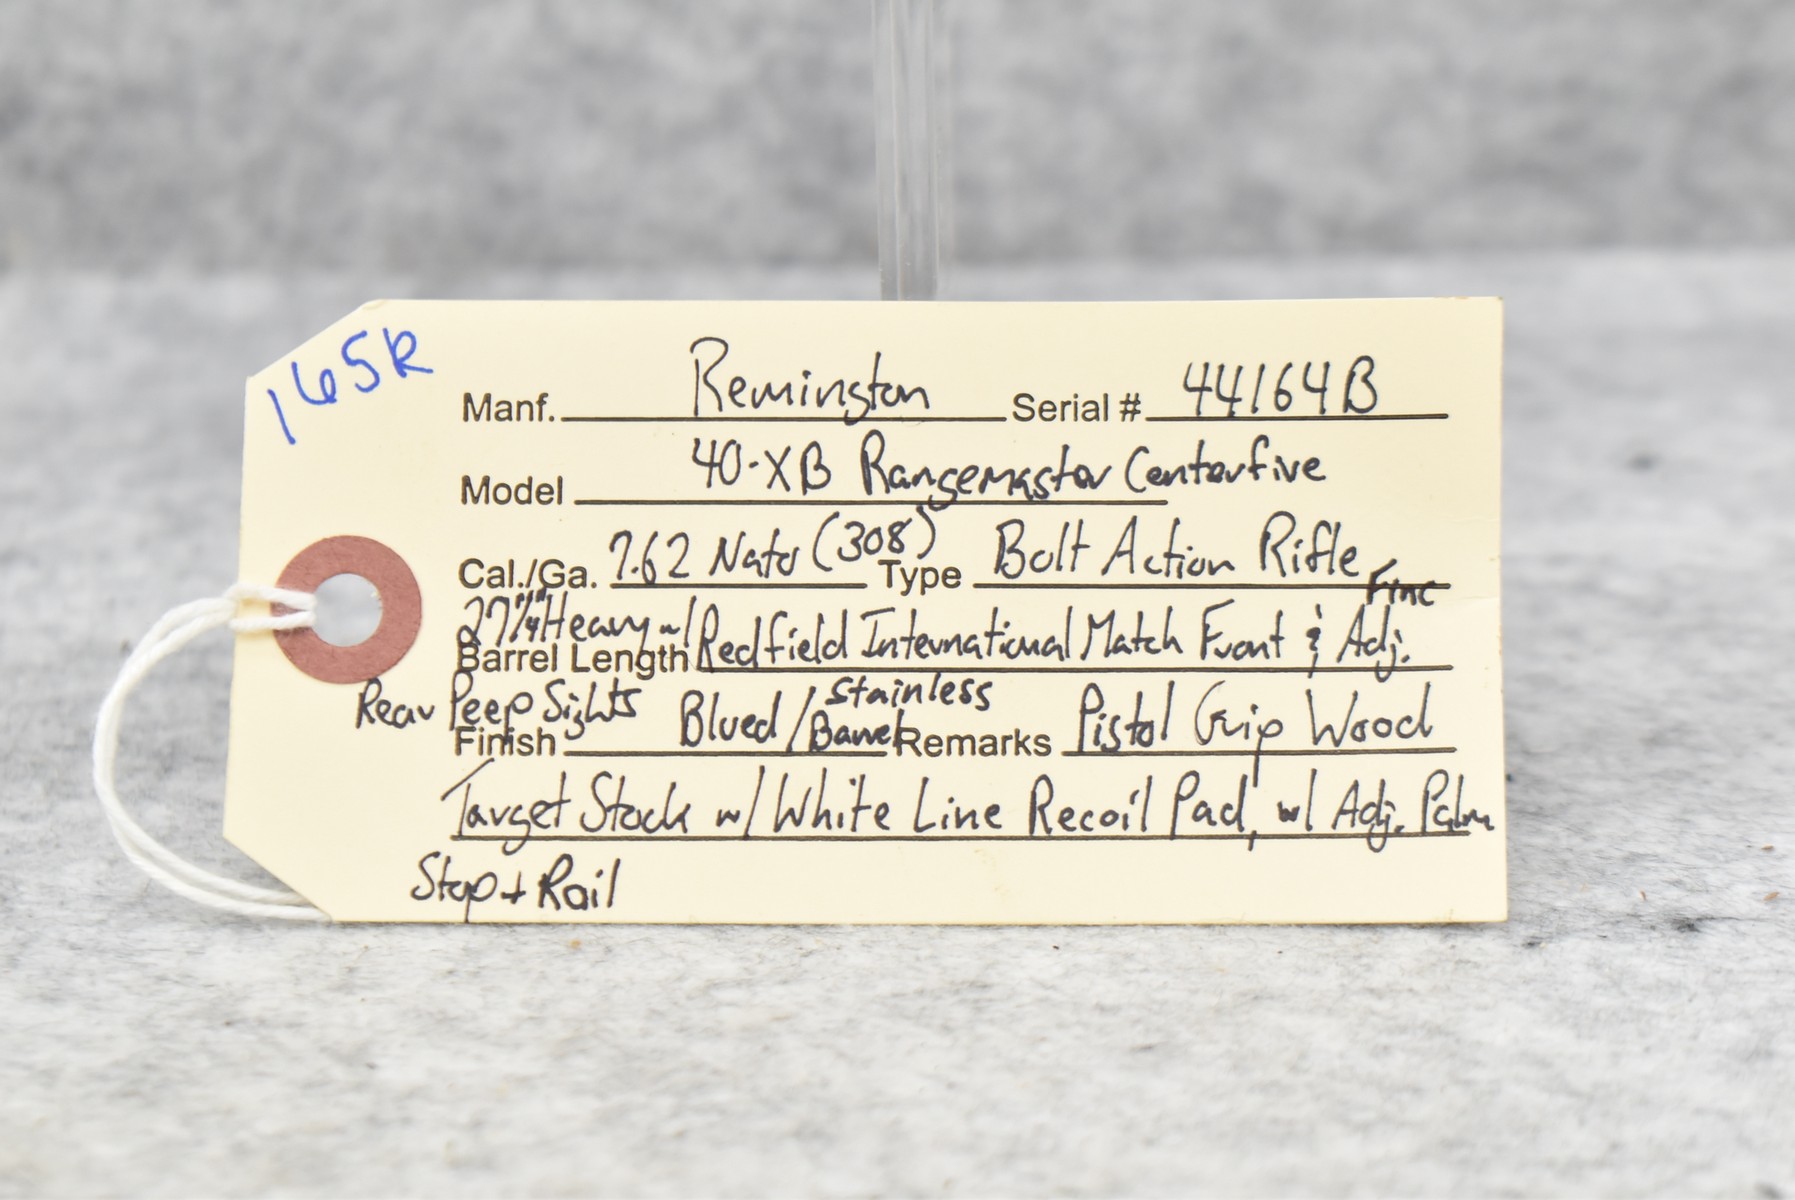 165R
Manf. Remington Serial # 44164B
Model 40-XB Rangemaster Centerfire
Cal./Ga. 7.62 Nato (308) Type Bolt Action Rifle
27 1/4" Heavy w/ Redfield International Match Front & Fine Adj.
Barrel Length
Rear Peep Sights Blued / Stainless Barrel Pistol Grip Wood
Finish Remarks
Target Stock w/ White Line Recoil Pad, w/ Adj. Palm
Stop + Rail